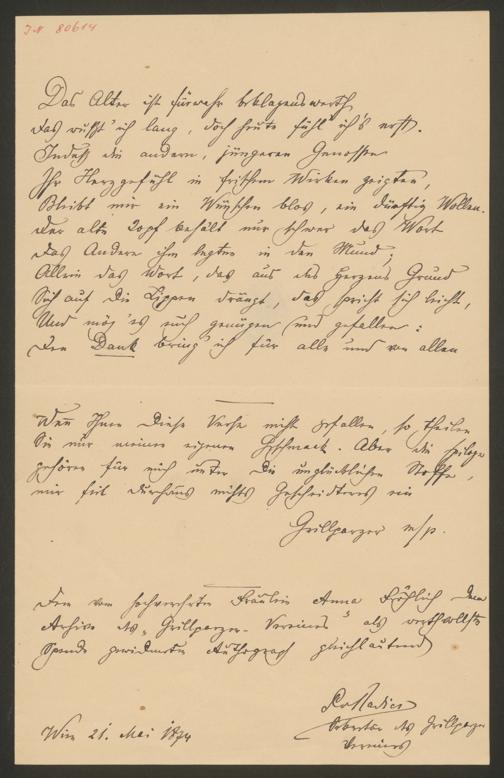 I.N. 80614
Das Alter ist fürwahr beklagenswerth
Das wußt' ich lang, doch heute fühl' ich's erst.
Indeß die andern, jüngeren Genossen
Ihr Herzgefühl in frischem Wirken zeigten,
Bleibt mir ein Wünschen blos, ein dürftig Wollen.
Der alte Kopf behält nur schwer das Wort
Das Andere ihm legten in den Mund;
Allein das Wort, das aus des Herzens Grund
Sich auf die Lippen drängt, das spricht sich leicht,
Und mög' es euch genügen und gefallen:
Den Dank bring' ich für alle und von allen
Wenn Ihnen diese Verse nicht gefallen, so theilen
Sie nur meinen eigenen Geschmack. Aber die Epiloge
gehören für mich unter die unglücklichen Stoffe,
mir fiel durchaus nichts Gescheidteres ein
Grillparzer m/p.
Dem von hochverehrten Fräulein Anna Fröhlich dem
Archive des "Grillparzer-Vereines" als werthvollste
Spende gewidmeten Autograph gleichlautend
Radics
des Grillparzer
Vereines
Wien 21. Mai 1874